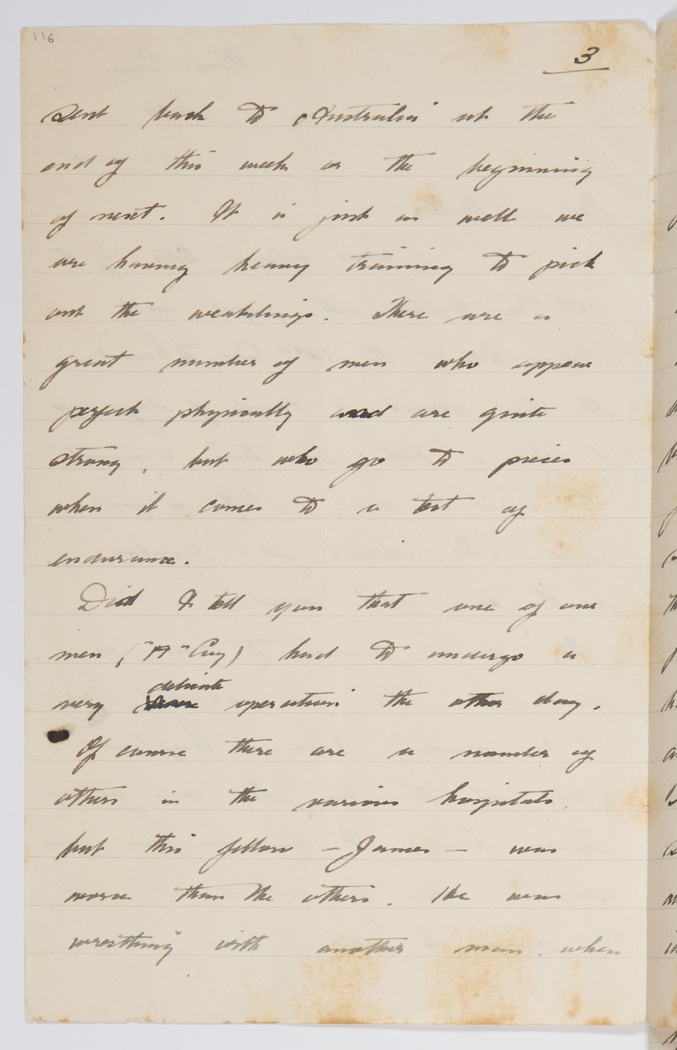 116
3
sent back to Australia at the
end of this week or the beginning
of next. It is just as well we
are having heavy training to pick
out the weaklings. There are a
great number of men who appear
perfect physically and are quite
strong, but who go to pieces
when it comes to a test of
endurance.
Did I tell you that one of our
men ("A" Coy) had to undergo a
delicate
very operation the other day.
Of course there are a number of
others in the various hospitals.
but this fellow - James - was
worse than the others. He was
wrestling with another man, when